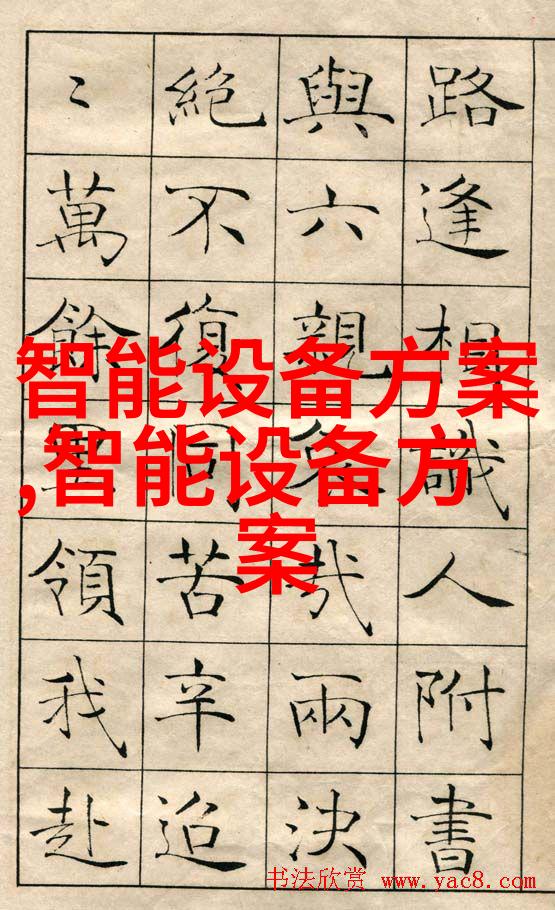 路逢相識人附書
與六親哀哉兩決
絕不復同苦辛迢
〻萬餘里領我赴
智能设备方案
,智能设备方
案
书法欣赏 www.yac8.com